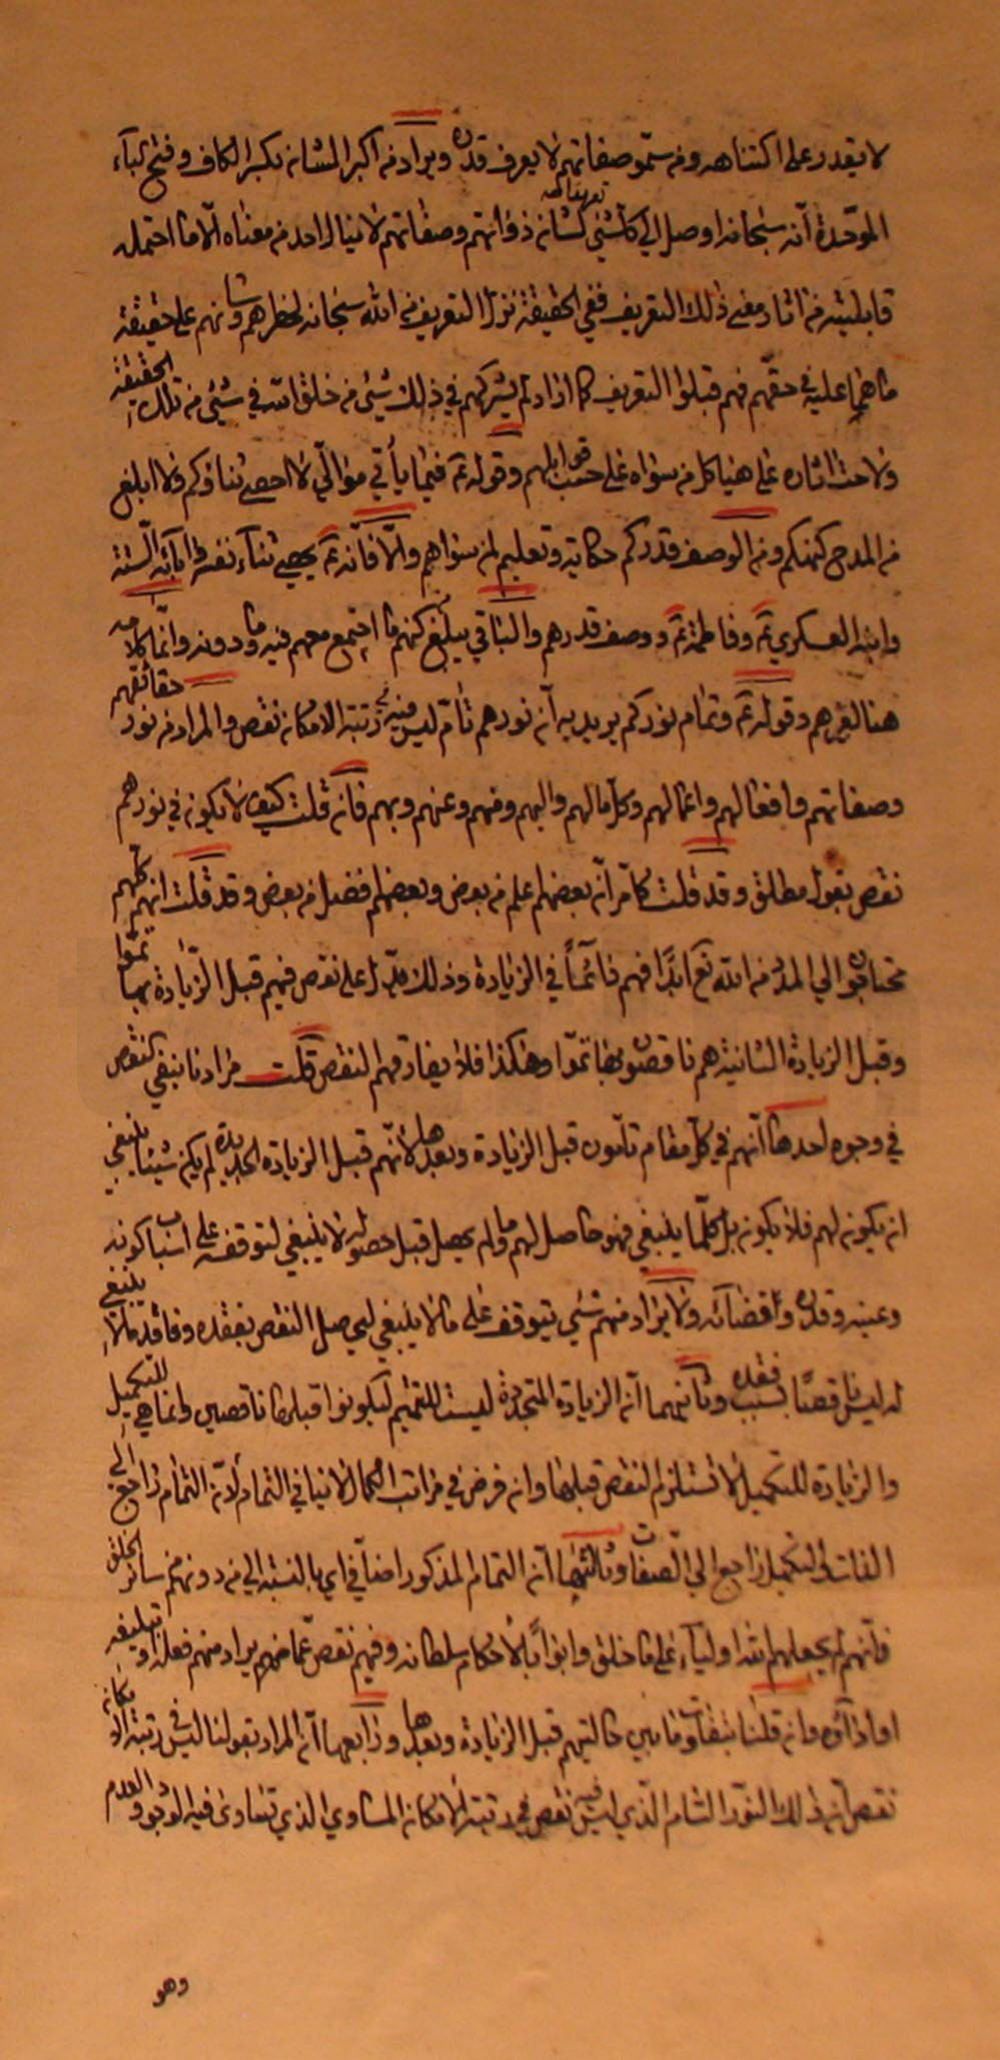 لا يقدر على اكتناهه ومن سمو صفاتهم لا يعرف قدره ويراد من اكبر الشان بكسر الكاف وفتح الباء
الموحدة انه سبحانه اوصل الي كل شيء شان ذواتهم وصفاتهم لا ينال احد من معناه الا ما احتمله
قابليته من اثار معنى ذلك التعريف ففي الحقيقة نزل التعريف من الله سبحانه لخطرهم وشانهم على حقيقة
ما هم عليه في حقهم فهم قبلوا التعريف كما اراد لم يشركهم في ذلك شيء من خلق الله في شيء من تلك الحقيقة
ولاحت اثاره على هياكل من سواه على حسب قوابلهم وقوله ع فيما يأتي موالي لا احصي ثناؤكم ولا ابلغ
من المدح كنهكم ومن الوصف قدركم حكاية وتعليم لمن سواهم والا فانه ع يحصي ثناء نفسه وابائه الستة
وابنه العسكري ع وفاطمة ع ووصف قدرهم والباقي يبلغ كنه ما اجتمع معهم فيه وما دونه وانما كلامه
هنا لغيرهم وقوله ع وتمام نوركم يريد به ان نورهم تام ليس فيه في رتبة الامكان نقص والمراد من نور حقائقهم
وصفاتهم وافعالهم واعمالهم وكل ما لهم واليهم ومنهم وعنهم وبهم فان قلت كيف لا يكون في نورهم
نقص بقول مطلق وقد قلت كما مر ان بعضهم اعلم من بعض وبعضهم افضل من بعض وقد قلت انهم كلهم
محتاجون الي المدد من الله تع ابدا فهم دائما في الزيادة وذلك يدل على نقص فيهم قبل الزيادة بها تموا
وقبل الزيادة الثانية هم ناقصون بها تموا وهكذا فلا يفارقهم النقص قلت مرادنا بنفي النقص
في وجوه احدها انهم في كل مقام تامون قبل الزيادة وبعدها لانهم قبل الزيادة الجديدة لم يكن شيئا ينبغي
ان يكون لهم فلا يكون بل كلما ينبغي فهو حاصل لهم وما لم يحصل قبل حصوله لا ينبغي لتوقفه على اسباب كونه
وعينه وقدره وقضائه ولا يراد منهم شيء يتوقف على ما لا ينبغي ليحصل النقص بفقده وفاقد ما لا ينبغي
له ليس ناقصا بسبب فقده وثانيهما ان الزيادة المتجددة ليست للتتميم ليكونوا قبلها ناقصين وانما هي للتكميل
والزيادة للتكميل لا تستلزم النقص قبلها وان فرض في مراتب الكمال لا ينافي التمام لان التمام راجع الي
الذات والتكميل راجع الي الصفات وثالثهما ان التمام المذكور اضافي اي بالنسبة الي من دونهم من سائر الخلق
فانهم لم يجعلهم الله اولياء على ما خلق وابوابا لاحكام سلطانه وفيهم نقص عما منهم يراد منهم فعله وتبليغه
او اداؤه وان قلنا بتفاوت ما بين حالتيهم قبل الزيادة وبعدها ورابعها ان المراد بقولنا ليس في رتبة الامكان
نقص ان ذلك النور التام الذي ليس فيه نقص في رتبة الامكان المساوي الذي تساوى فيه الوجود والعدم
وهو